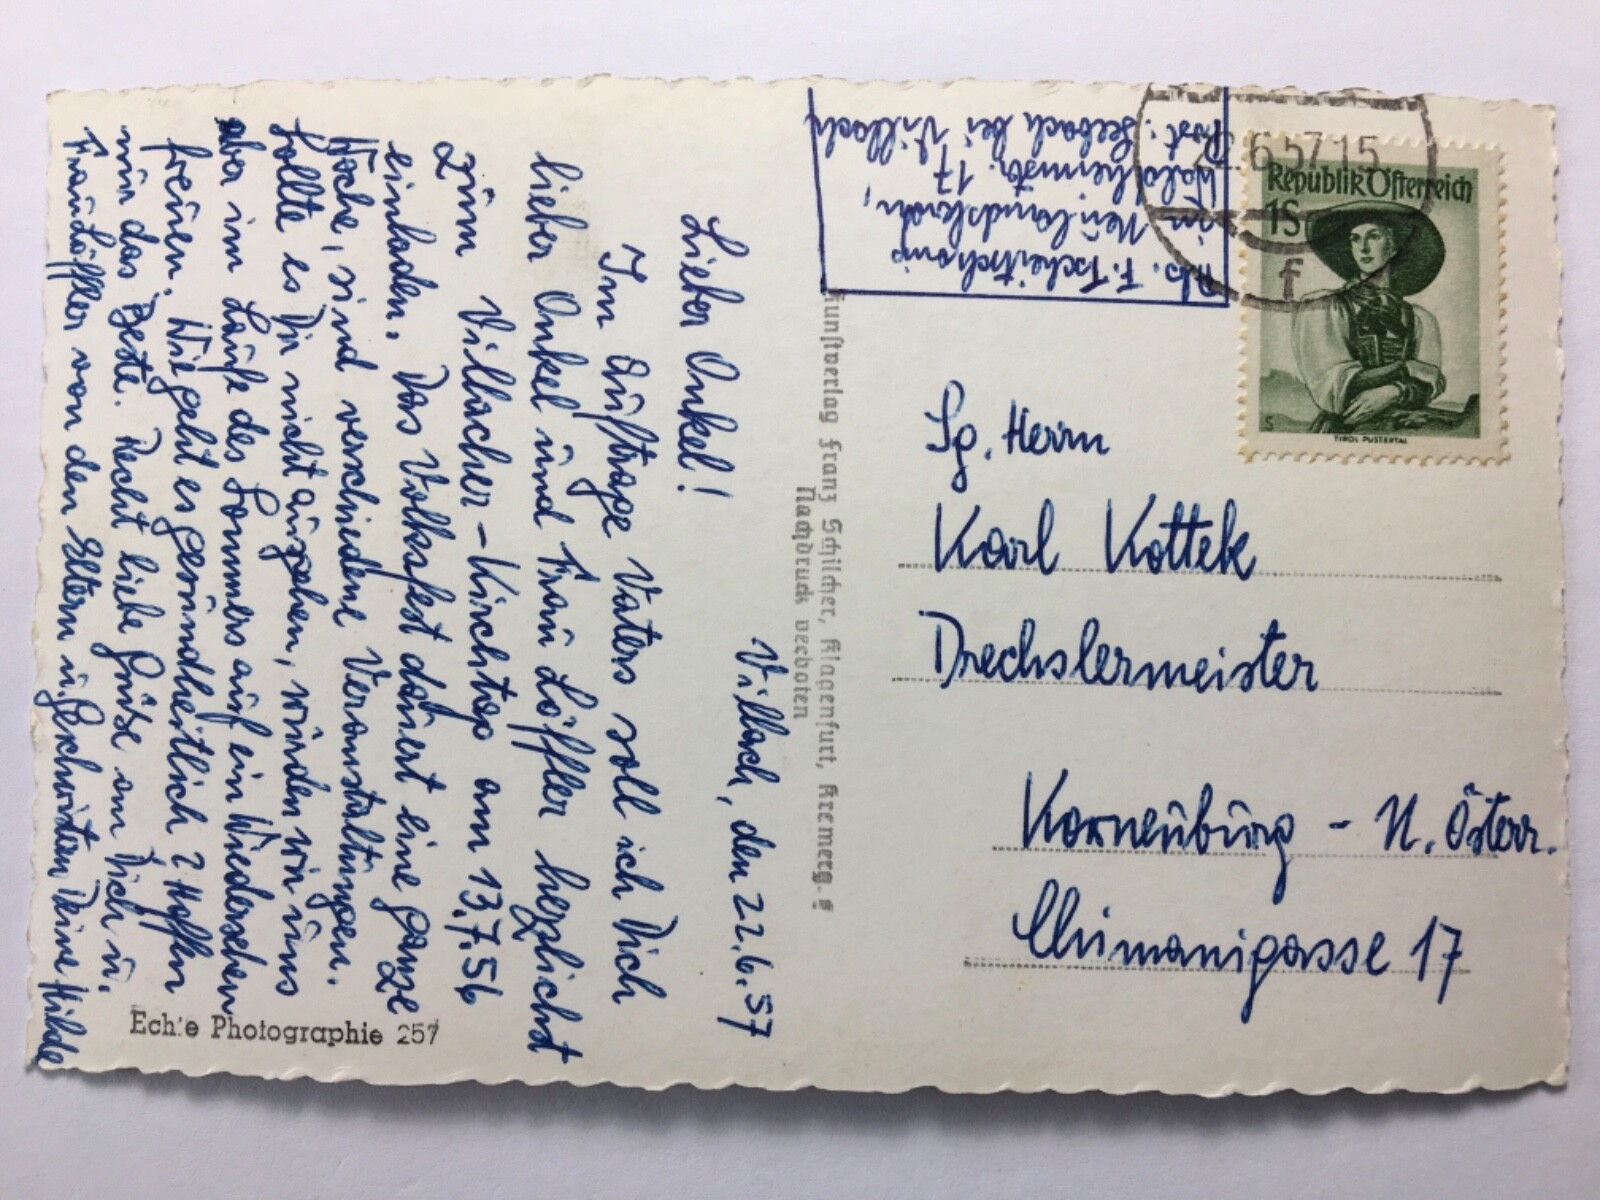 Villach, den 22.6.57
Lieber Onkel!
Im Auftrage Vaters soll ich Dich
lieber Onkel und Frau Löffler herzlichst
zum Villacher-Kirchtag am 13.7.56
einladen. Das Volksfest dauert eine ganze
Woche, sind verschiedene Veranstaltungen.
Sollte es Dir nicht ausgehen, würden wir uns
aber im Laufe des Sommers auf ein Wiedersehen
freuen. Wie geht es gesundheitlich? Hoffen
nur das Beste. Recht liebe Grüße an Dich u.
Frau Löffler von den Eltern u. Geschwistern Deine Hilde
Echte Photographie 257
Kunstverlag Franz Schilcher, Klagenfurt, Kremerg. 8
Nachdruck verboten
Abs. F. Tscheitschonig
in Neulandskron,
Waldheimstr. 17
Post: Seebach bei Villach
22.6.57 15
f
Republik Österreich
1S
S
TIROL PUSTERTAL
Sg. Herrn
Karl Kottek
Drechslermeister
Korneuburg - N. Österr.
Chimanigasse 17